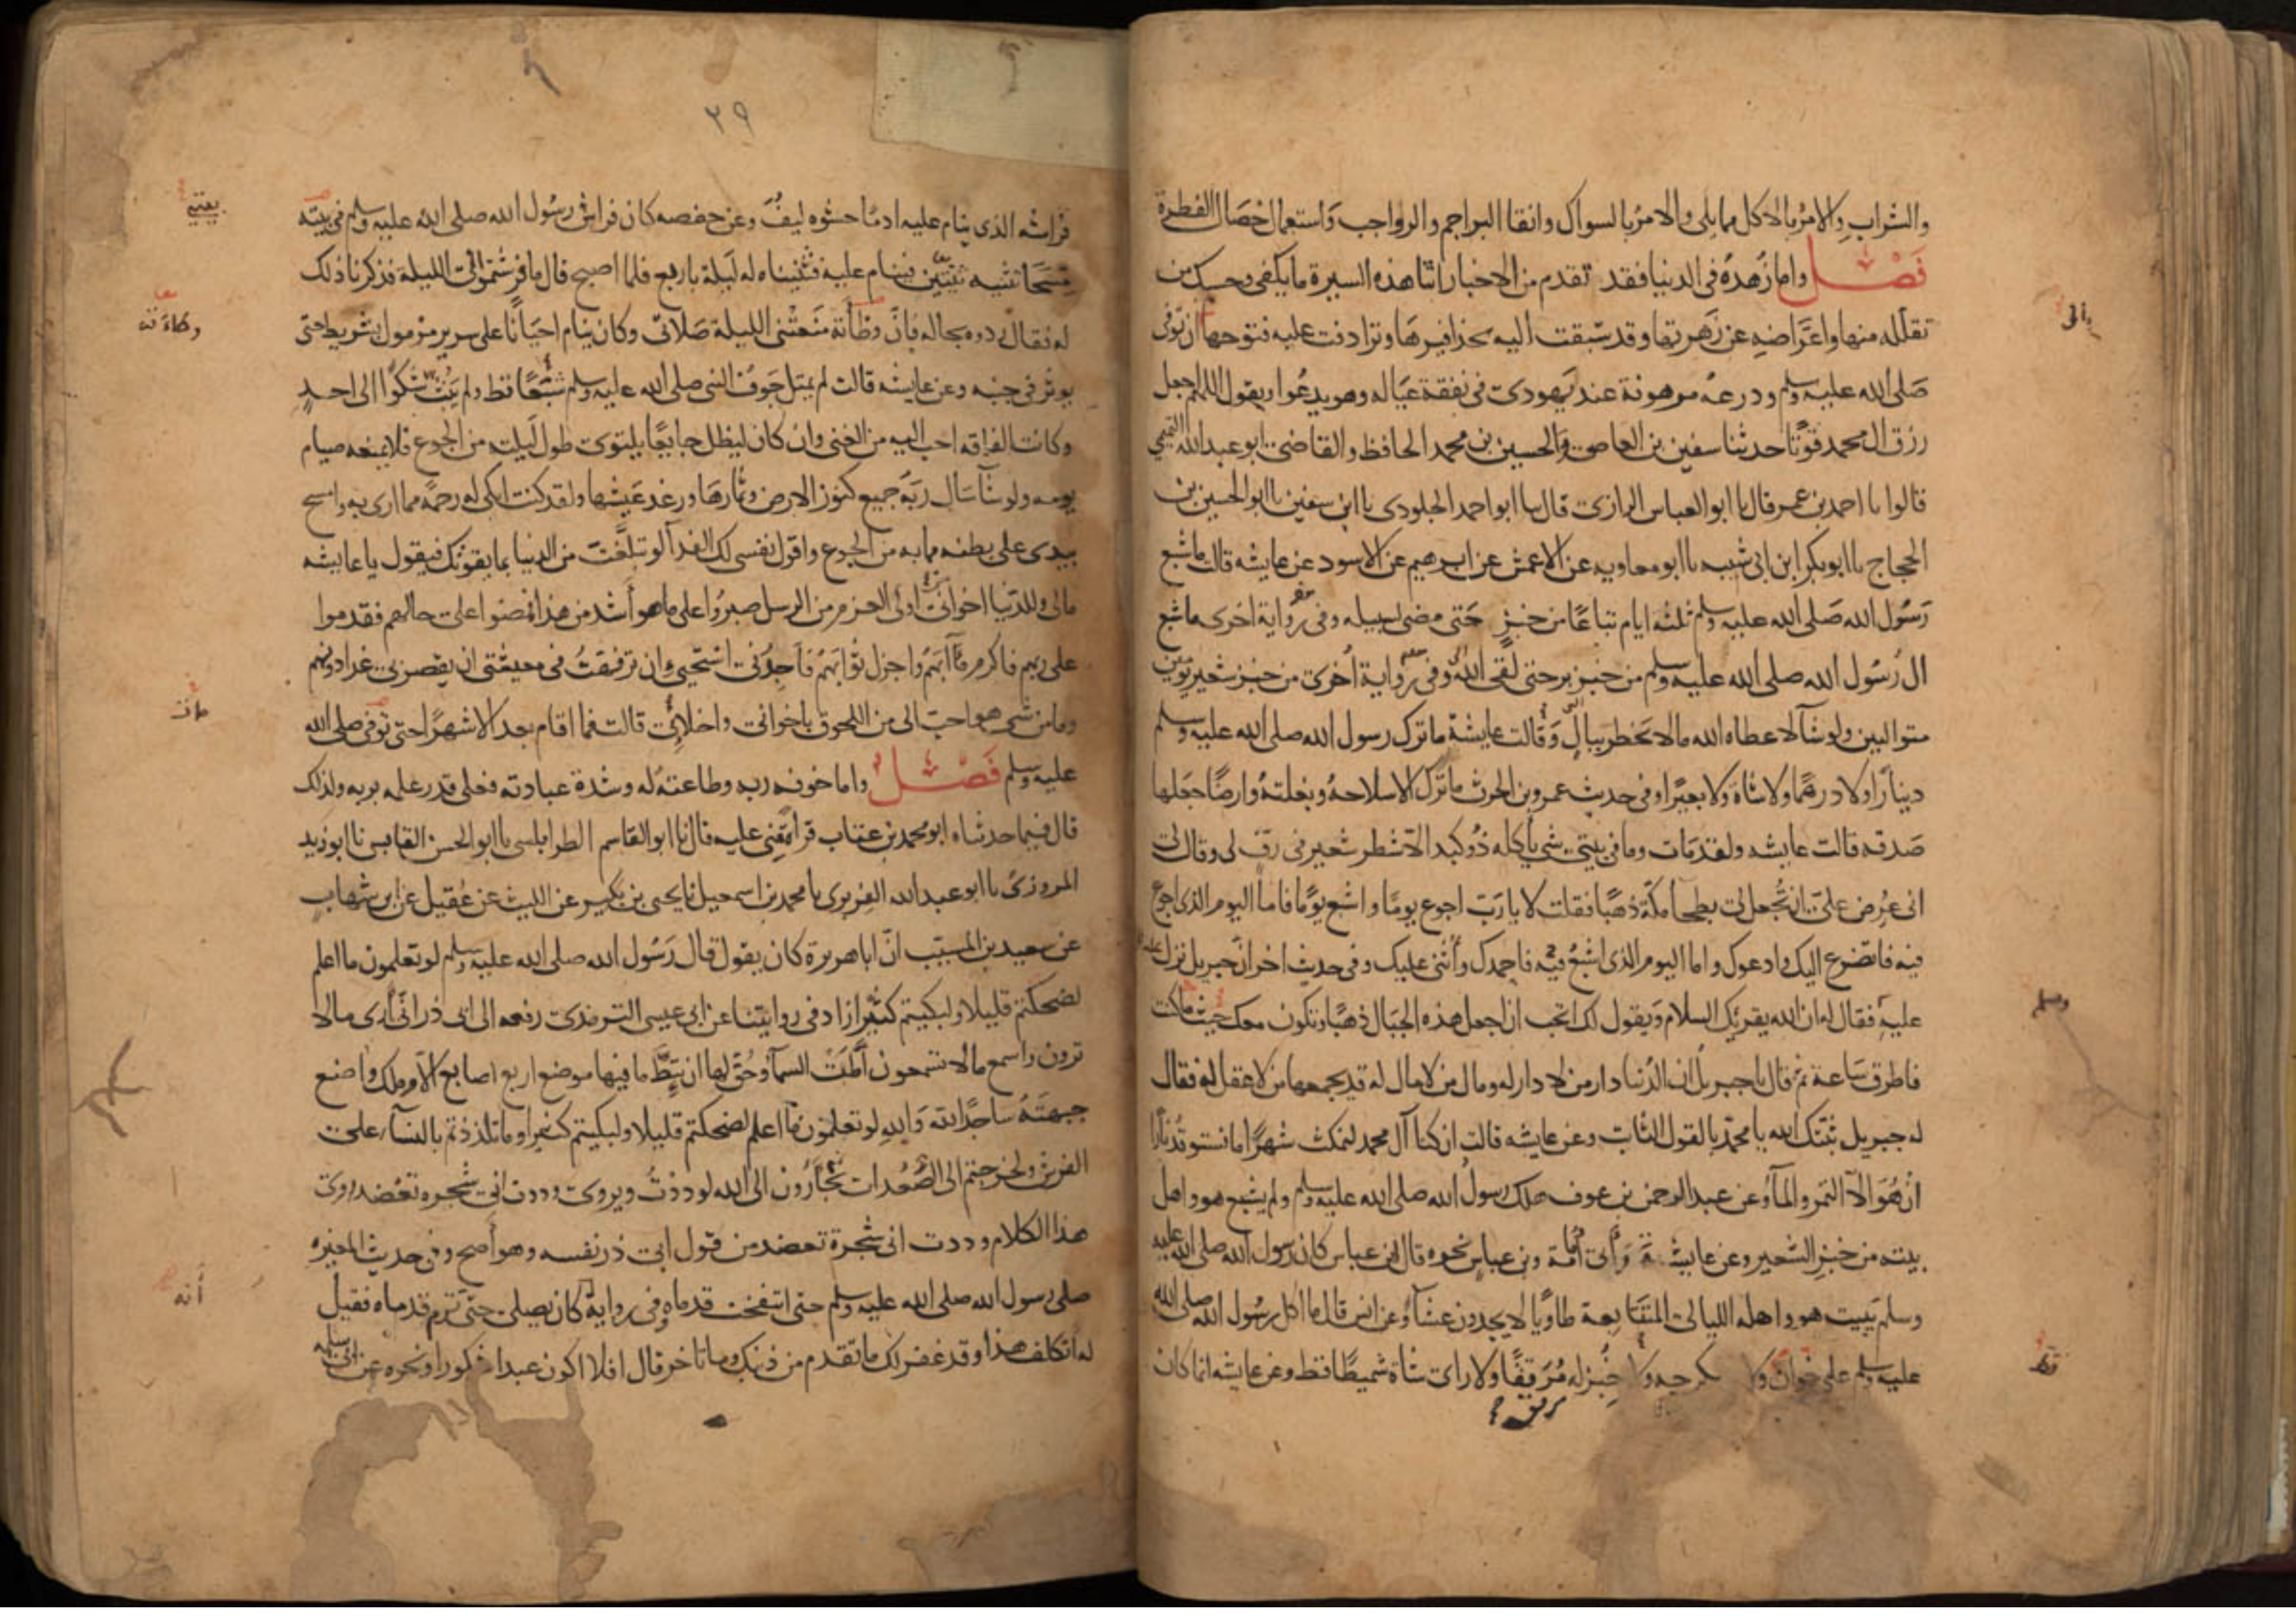 والشراب والامر بالاكل مما يلى والامر بالسواك وانقا البراجم والرواجب واستعمال خصال الفطرة
فَصْل واما زُهده فى الدنيا فقد تقدم من الاخبار اثنا هذه السيرة ما يكفى وحسبك من
تقلله منها واعراضه عن زهرتها وقد سبقت اليه بحذافيرها وترادفت عليه فتوحها ان توفى
صَلى الله عليه وسلم ودرعه مرهونة عند يهودى فى نفقة عياله وهو يدعوا ويقول اللهم اجعل
رزق ال محمد قوتًا حدثنا سفين بن العاصى والحسين بن محمد الحافظ والقاضى ابو عبد الله التميمى
قالوا نا احمد بن عمر قال نا ابو العباس الرازى قال نا ابو احمد الجلودى نا ابن سفين نا ابو الحسين بن
الحجاج نا ابو بكر ابن ابى شيبه نا ابو معاويه عن الاعمش عن ابرهيم عن الاسود عن عايشه قالت ما شبع
رَسُول الله صَلى الله عليه وسلم ثلثه ايام تباعًا من خبزٍ حَتى مضى لسبيله وفى رواية اخرى ما شبع
ال رُسُول الله صلى الله عليه وسلم من خبز بر حتى لقى الله وفى رواية اُخرى من خبز شعير يومين
متواليين ولو شآ لاعطاه الله مالا يخطر ببالٍ وَقالت عايشة ما ترك رسول الله صلى الله عليه وسلم
دينارًا ولا درهمًا ولا شاة ولا بعيرًا وفى حديث عمرو بن الحرث ما ترك الا سلاحهُ وبغلتهُ وارضًا جعَلها
صَدقه قالت عايشه ولقد مَات وما فى بيتى شى ياكله ذُو كبد الا شطر شعير فى رف لى وقال لى
انى عُرض علىّ ان تُجعل لى بطحآ مكّة ذهبًا فقلت لا يا رَبّ اجوع يومًا واشبع يومًا فاما اليوم الذى اجوع
فيه فاتضرع اليك وادعوك واما اليوم الذى اشبعُ فيه فاحمدك واُثنى عليك وفى حديث اخر انّ جبريل نزل
عليه فقال له ان الله يقريك السلام وَيقول لك اتحب ان اجعل هذه الجبال ذهبًا وتكون معك حيث ما كنت
فاطرق سَاعة ثم قال يا جبريل ان الدُنيا دار من لا دار له ومال من لا مال له قد يجمعها من لا عقل له فقال
له جبريل ثبتك الله يا محمّد بالقول الثابت وعن عايشه قالت ان كنا آل محمد لنمكث شهرًا ما نستوقد نارًا
انْ هُوَ الّا التمر والمآ وعن عبد الرحمن بن عوف هلك رسولُ الله صلى الله عليه وسلم ولم يشبع هو واهل
بيته من خبز الشعير وعن عايشة وَابى امَامة وبن عباس نحوه قال ابن عباس كان رسول الله صلى الله عليه
وسلم يبيت هو واهله الليالى المتتابعة طاويًا لا يجدون عشآً وعن انس قال ما اكل رسُول الله صلى الله
عليه وسلم على خوان ولا سكرجه ولا خُبز له مُرَققًا ولا راى شاة شميطًا قط وعن عايشه انما كان
والى
وسلم
قط
٢٩
فراشه الذى ينام عليه ادمًا حشوه ليفٌ وعن حفصه كان فراش رسُول الله صلى الله عليه وسلم فى بيته
مِسحًا نثنيه ثنيتين فينام عليه فثنيناه له لَيلة باربع فلما اصبح قال ما فرشتموا لى الليلة فذكرنا ذلك
له فقال ردوه بحاله فانّ وطأته منَعتنى الليلة صَلاتى وكان ينام احيَانًا على سرير مزمول بشريط حتى
يوثر فى جنبه وعن عايشه قالت لم يمتل جَوفُ النبى صلى الله عليه وسلم شبعًا قط ولم يبُثّ شكوًا الى احدٍ
وكانت الفاقه احب اليه من الغنى وان كان ليظل جايعًا يلتوى طول ليلته من الجوع فلا يمنعه صيام
يومه ولو شآ سَال ربَهُ جميع كنوز الارض وثمارهَا ورغد عَيشها ولقد كنت ابكى له رحمةً مما ارى به وامسح
بيدى على بطنه مما به من الجوع واقول نفسى لك الفدآ لو تبلّغتَ من الدنيا بما يقوتك فيقول يا عايشه
مالى وللدنيا اخوانى اولى العزم من الرسل صبرُوا على ما هو أشد من هذا فمضوا على حالهم فقدموا
على ربهم فاكرم مآبَهمُ واجزل ثوابهمُ فأجِدُنى استحيى ان ترفهتُ فى معيشتى ان يقصر بى غدا دونهم
وما من شى هو احبّ الى من اللحوق باخوانى واخلائى قالت فما اقام بعد الا شهرًا حتى توفى صلى الله
عليه وسلم فَصْل واما خوفه ربه وطاعتهُ له وشدة عبادته فعلى قدر علمه بربه ولذلك
قال فيما حدثناه ابو محمد بن عتاب قراءة منى عليه قال نا ابو القاسم الطرابلسى نا ابو الحسن القابسى نا ابو زيد
المروزى نا ابو عبد الله الفربرى نا محمد بن اسمعيل نا يحيى بن بكير عن الليث عن عُقيل عن ابن شهاب
عن سعيد بن المسيّب انّ ابا هريرة كان يقول قال رَسُول الله صلى الله عليه وسلم لو تعلمون ما اعلم
لضحكتم قليلا ولبكيتم كثيرا زاد فى روايتنا عن ابى عيسى الترمذى رفعه الى ابى ذر انّى أرى مالا
ترون واسمع مالا تسمعون أطّت السمآ وحُقّ لها ان تئطّ ما فيها موضع اربع اصابع الا وملك واضع
جبهتهُ ساجدًا لله وَاللهِ لو تعلمُون ما اعلم لضحكتم قليلا ولبكيتم كثيرا وما تلذذتم بالنسآء على
الفرش ولخرجتم الى الصُعُدات تَجْأَرُون الى الله لوددتُ ويروى وددت انى شجره تعضد روى
هذا الكلام وددت انى شجرة تعضد من قول ابى ذر نفسه وهو أصح وفى حديث المغيره
صلى رسول الله صلى الله عليه وسلم حتى انتفخت قدماه وفى رواية كان يصلى حتى ترم قدماه فقيل
له اتكلف هذا وقد غفر لك ما تقدم من ذنبك وما تاخر قال افلا اكون عبدا شكورا ونحوه عن ابى سلمه
وطاءته
أنه